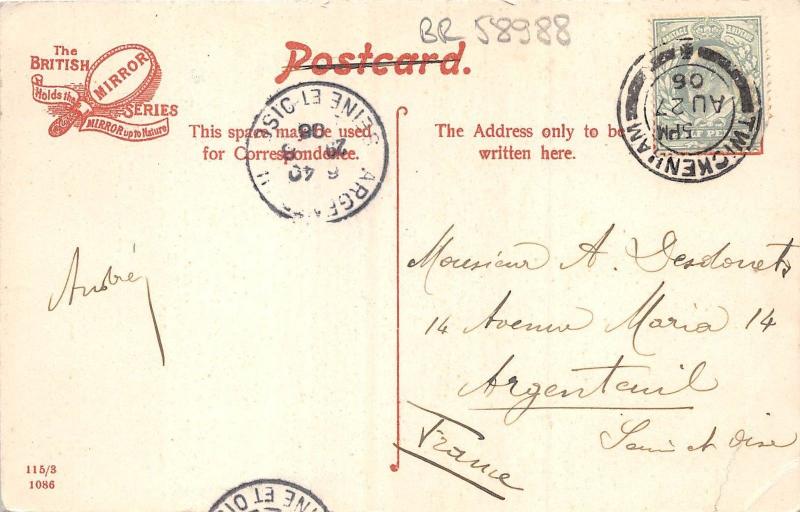 BR 58988
The
BRITISH
MIRROR
SERIES
Holds the
MIRROR up to Nature
Postcard.
This space may be used
for Correspondence.
The Address only to be
written here.
TWICKENHAM
5 PM
AU 27
06
POSTAGE & REVENUE
SEINE ET OISE
6 40
Monsieur A. Desdouets
14 Avenue Maria 14
Argenteuil
Seine et Oise
France
115/3
1086